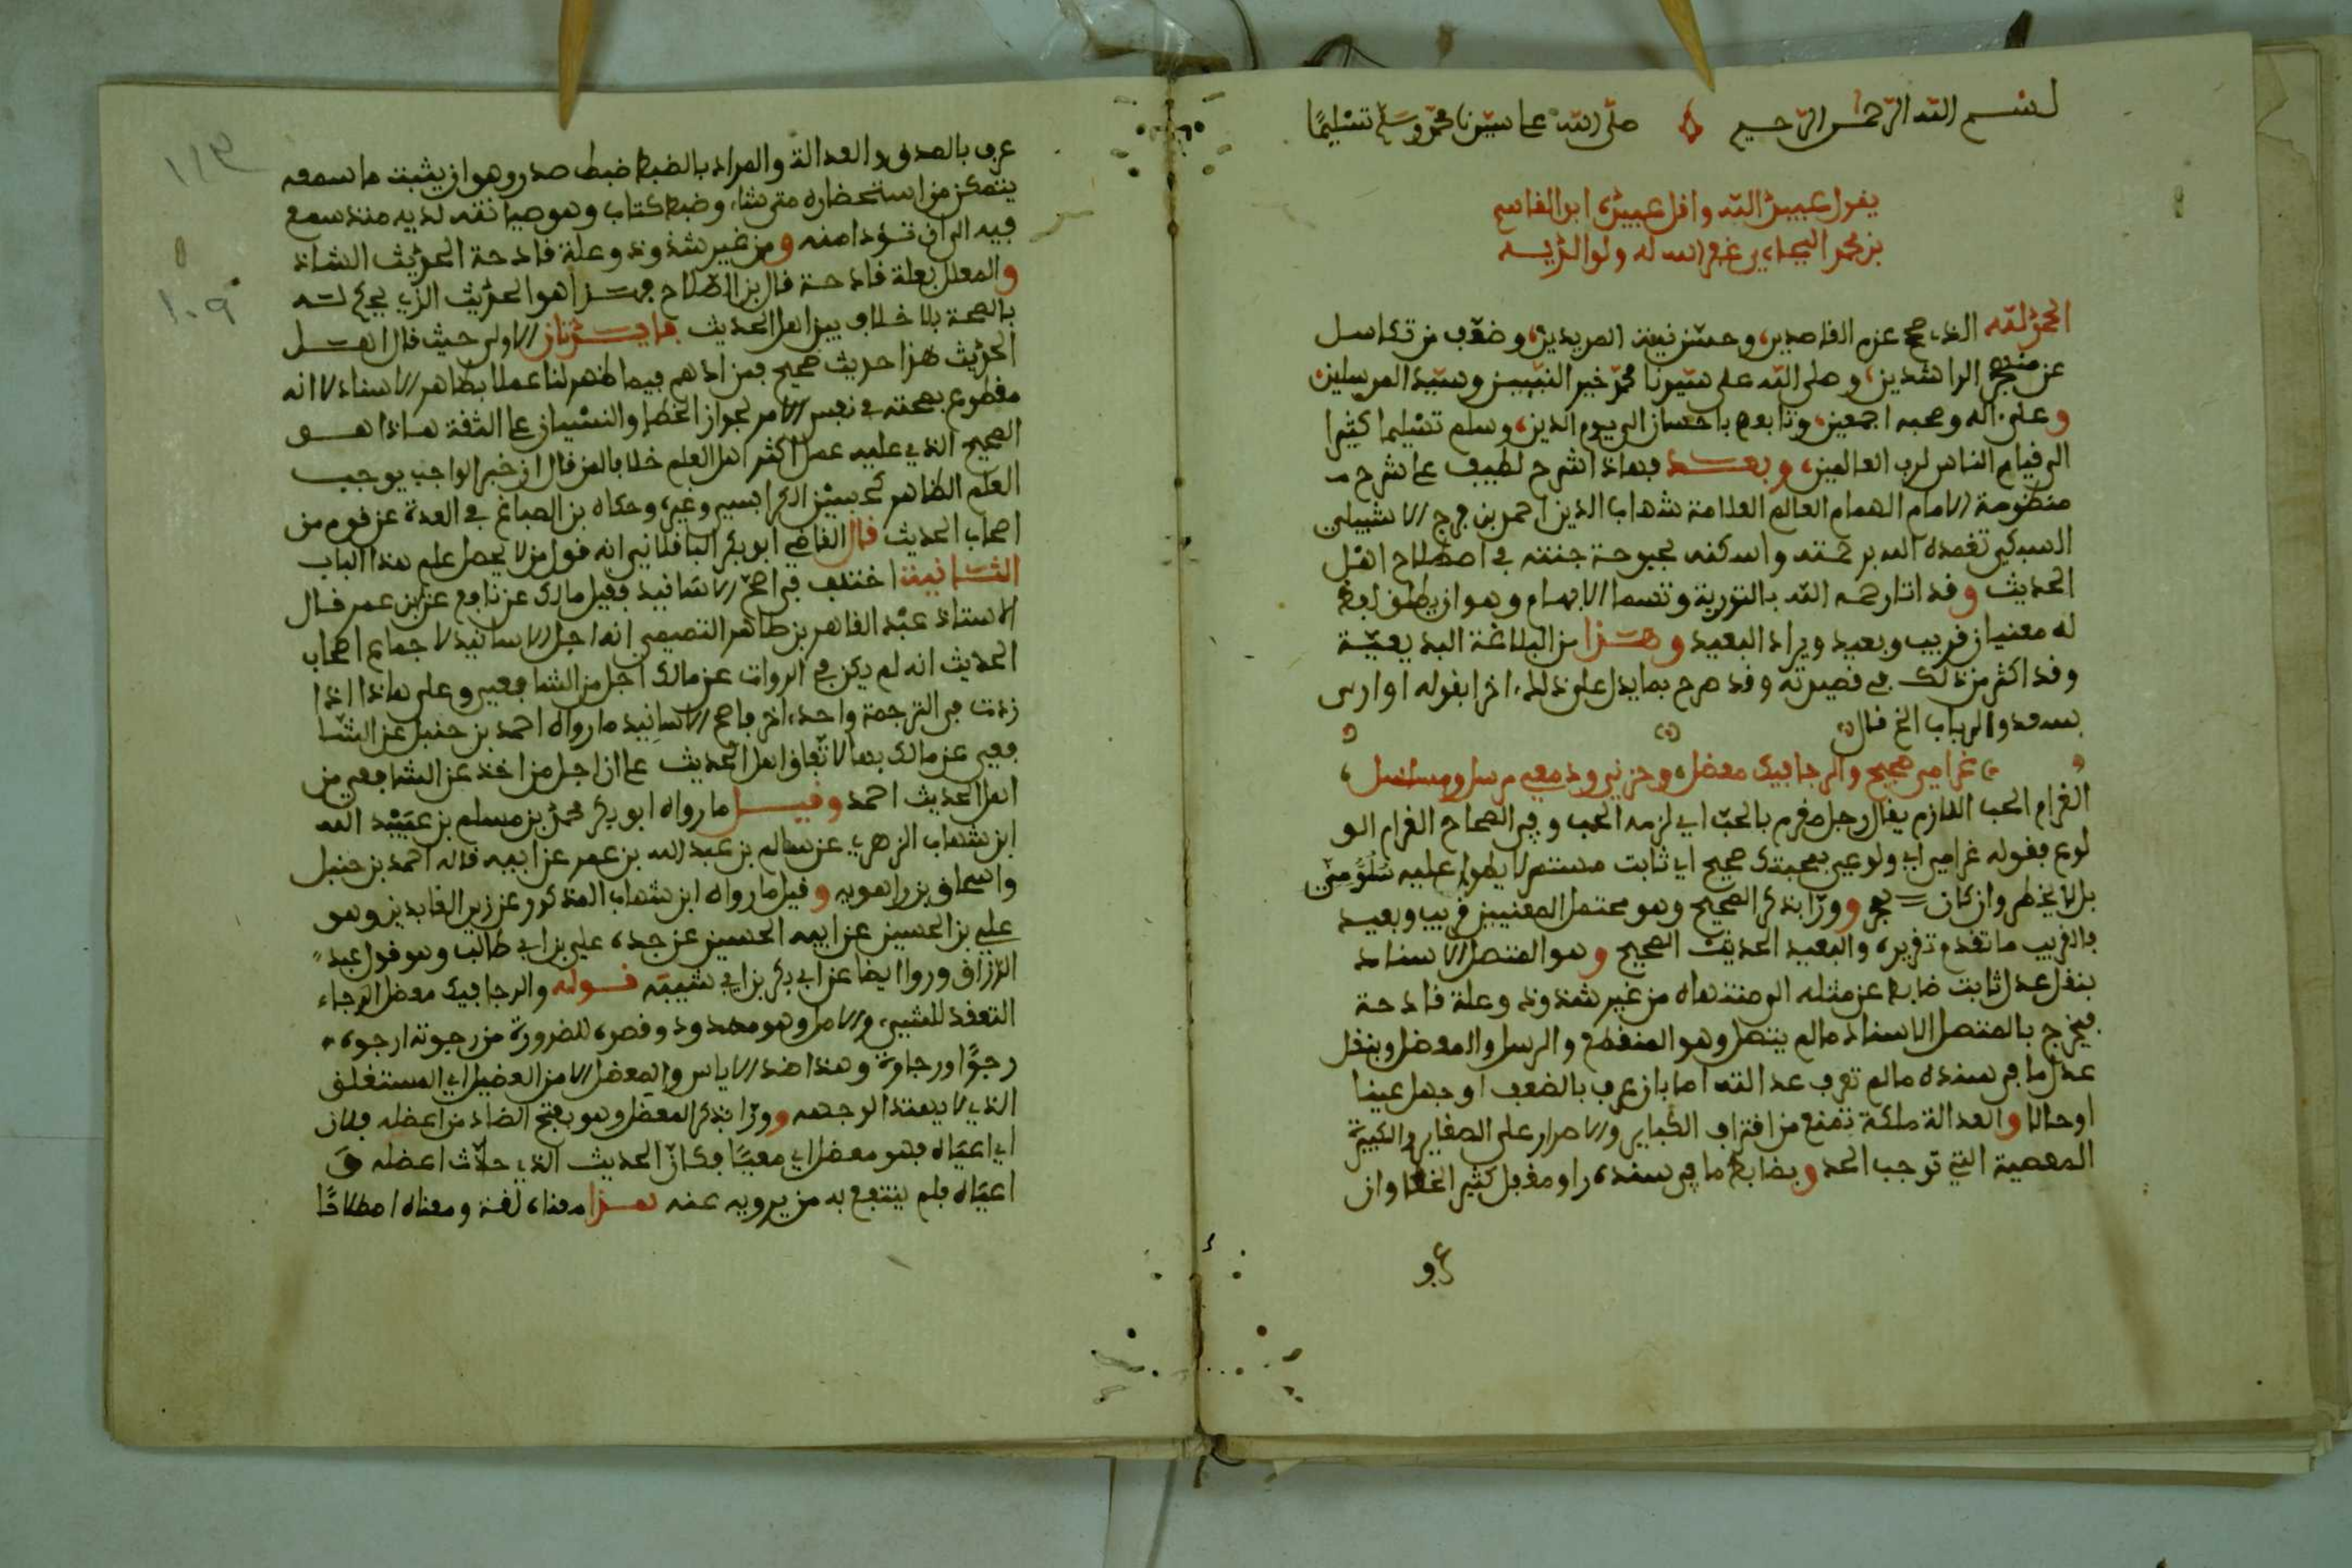 بسم الله الرحمن الرحيم صلى الله على سيدنا محمد وسلم تسليما
يقول عبيد الله وأقل عبيده ابو القاسم
بن محمد البجاءي غفر الله له ولوالديه
الحمد لله الذي صحح عزم القاصدين وحسن نية المريدين وضعف من تكاسل
عن منهج الراشدين وصلى الله على سيدنا محمد خير النبيين وسيد المرسلين
وعلى ءاله وصحبه اجمعين وتابعهم باحسان الى يوم الدين وسلم تسليما كثيرا
الى قيام الناس لرب العالمين وبعد فهاذا شرح لطيف على شرح
منظومة الامام الهمام العالم العلامة شهاب الدين احمد بن فرج الاشبيلي
السبكي تغمده الله برحمته واسكنه بحبوحة جنته في اصطلاح اهل
الحديث وقد اتا رحمه الله بالتورية وتسما الابهام وهو ان يطلق لفظ
له معنيان قريب وبعيد ويراد البعيد وهذا من البلاغة البديعية
وقد اكثر من ذلك في قصيدته وقد صرح بما يدل على ذلك اخرا بقوله اواري
بسعد والرباب الخ قال
غرامي صحيح والرجا فيك معضل وحزني ودمعي مرسل ومسلسل
الغرام الحب اللازم يقال رجل مغرم بالحب اي لزمه الحب وفي الصحاح الغرام الو
لوع فقوله غرامي اي ولوعي بمحبتك صحيح اي ثابت مستمر لا يطرا عليه سلو مني
بل لا يخطر وان كان وورا بذكر الصحيح وهو محتمل المعنيين قريب وبعيد
فالقريب ما تقدم تقريره والبعيد الحديث الصحيح وهو المتصل الاسناد
بنقل عدل ثابت ضابط عن مثله الى منتهاه من غير شذوذ وعلة قادحة
فيخرج بالمتصل الاسناد ما لم يتصل وهو المنقطع والمرسل والمعضل وبنقل
عدل ما في سنده ما لم تعرف عدالته اما بان عرف بالضعف او جهل عينا
او حالا والعدالة ملكة تمنع من اقتراف الكباير والاصرار على الصغاير والكبيرة
المعصية التي توجب الحد وبضابط ما في سنده راو مغفل كثير الخطا وان
عرف
عرف بالصدق والعدالة والمراد بالضبط ضبط صدر وهو ان يثبت ما سمعه
يتمكن من استحضاره متى شاء وضبط كتاب وهو صيانته لديه منذ سمع
فيه الى ان تؤدا منه ومن غير شذوذ وعلة قادحة الحديث الشاذ
والمعلل بعلة قادحة قال بن الصلاح فهذا هو الحديث الذي يحكم له
بالصحة بلا خلاف بين اهل الحديث فايدتان الاولى حيث قال اهل
الحديث هذا حديث صحيح فمرادهم فيما ظهر لنا عملا بظاهر الاسناد لا انه
مقطوع بصحته في نفس الامر لجواز الخطا والنسيان على الثقة هاذا هو
الصحيح الذي عليه عمل اكثر اهل العلم خلافا لمن قال ان خبر الواحد يوجب
العلم الظاهر كحسين الكرابسي وغيره وحكاه بن الصباغ في العدة عن قوم من
اصحاب الحديث قال القاضي ابو بكر الباقلاني انه قول من لا يحصل علم هذا الباب
الثانية اختلف في اصح الاسانيد فقيل مالك عن نافع عن بن عمر قال
الاستاذ عبد القاهر بن طاهر التميمي انه اجل الاسانيد لاجماع اصحاب
الحديث انه لم يكن في الروات عن مالك اجل من الشافعي وعلى هاذا اذا
زدت في الترجمة واحد ءاخر فاصح الاسانيد ما رواه احمد بن حنبل عن الشا
فعي عن مالك بها لاتفاق اهل الحديث على ان اجل من اخذ عن الشافعي من
اهل الحديث احمد وقيل ما رواه ابو بكر محمد بن مسلم بن عبيد الله
ابن شهاب الزهري عن سالم بن عبد الله بن عمر عن ابيه قاله احمد بن حنبل
واسحاق بن راهويه وقيل ما رواه ابن شهاب المذكور عن زين العابدين وهو
علي بن الحسين عن ابيه الحسين عن جده علي بن ابي طالب وهو قول عبد
الرزاق وروا ايضا عن ابي بكر بن ابي شيبة قوله والرجا فيك معضل الرجاء
التعقد للشيء والامل وهو ممدود وقصره للضرورة من رجوته ارجوه
رجوا ورجاوة وهذا ضد الاياس والمعضل الامر العضيل اي المستغلق
الذي لا يهتدا لوجهه وورا بذكر المعضل وهو بفتح الضاد من اعضله فلان
اي اعياه فهو معضل اي معيا فكان الحديث الذي حدث اعضله و
اعياه فلم ينتفع به من يرويه عنه هذا معناه لغة ومعناه اصطلاحا
١١٣
١٠٩